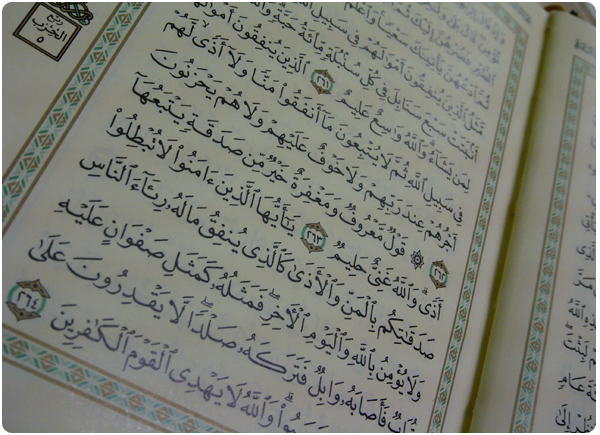 رُبع
الحِزب
٥
ثُمَّ ٱدْعُهُنَّ يَأْتِينَكَ سَعْيًا وَٱعْلَمْ
مَّثَلُ ٱلَّذِينَ يُنفِقُونَ أَمْوَٰلَهُمْ فِى سَبِيلِ
أَنۢبَتَتْ سَبْعَ سَنَابِلَ فِى كُلِّ سُنۢبُلَةٍ مِّا۟ئَةُ حَبَّةٍ
لِمَن يَشَآءُ وَٱللَّهُ وَٰسِعٌ عَلِيمٌ ٢٦١ ٱلَّذِينَ يُنفِقُونَ أَمْوَٰلَهُمْ
فِى سَبِيلِ ٱللَّهِ ثُمَّ لَا يُتْبِعُونَ مَآ أَنفَقُوا۟ مَنًّا وَلَآ أَذًى لَّهُمْ
أَجْرُهُمْ عِندَ رَبِّهِمْ وَلَا خَوْفٌ عَلَيْهِمْ وَلَا هُمْ يَحْزَنُونَ
٢٦٢ ۞ قَوْلٌ مَّعْرُوفٌ وَمَغْفِرَةٌ خَيْرٌ مِّن صَدَقَةٍ يَتْبَعُهَآ
أَذًى ۗ وَٱللَّهُ غَنِىٌّ حَلِيمٌ ٢٦٣ يَـٰٓأَيُّهَا ٱلَّذِينَ ءَامَنُوا۟ لَا تُبْطِلُوا۟
صَدَقَـٰتِكُم بِٱلْمَنِّ وَٱلْأَذَىٰ كَٱلَّذِى يُنفِقُ مَالَهُۥ رِئَآءَ ٱلنَّاسِ
وَلَا يُؤْمِنُ بِٱللَّهِ وَٱلْيَوْمِ ٱلْـَٔاخِرِ ۖ فَمَثَلُهُۥ كَمَثَلِ صَفْوَانٍ عَلَيْهِ
تُرَابٌ فَأَصَابَهُۥ وَابِلٌ فَتَرَكَهُۥ صَلْدًا ۖ لَّا يَقْدِرُونَ عَلَىٰ
وَٱللَّهُ لَا يَهْدِى ٱلْقَوْمَ ٱلْكَـٰفِرِينَ ٢٦٤